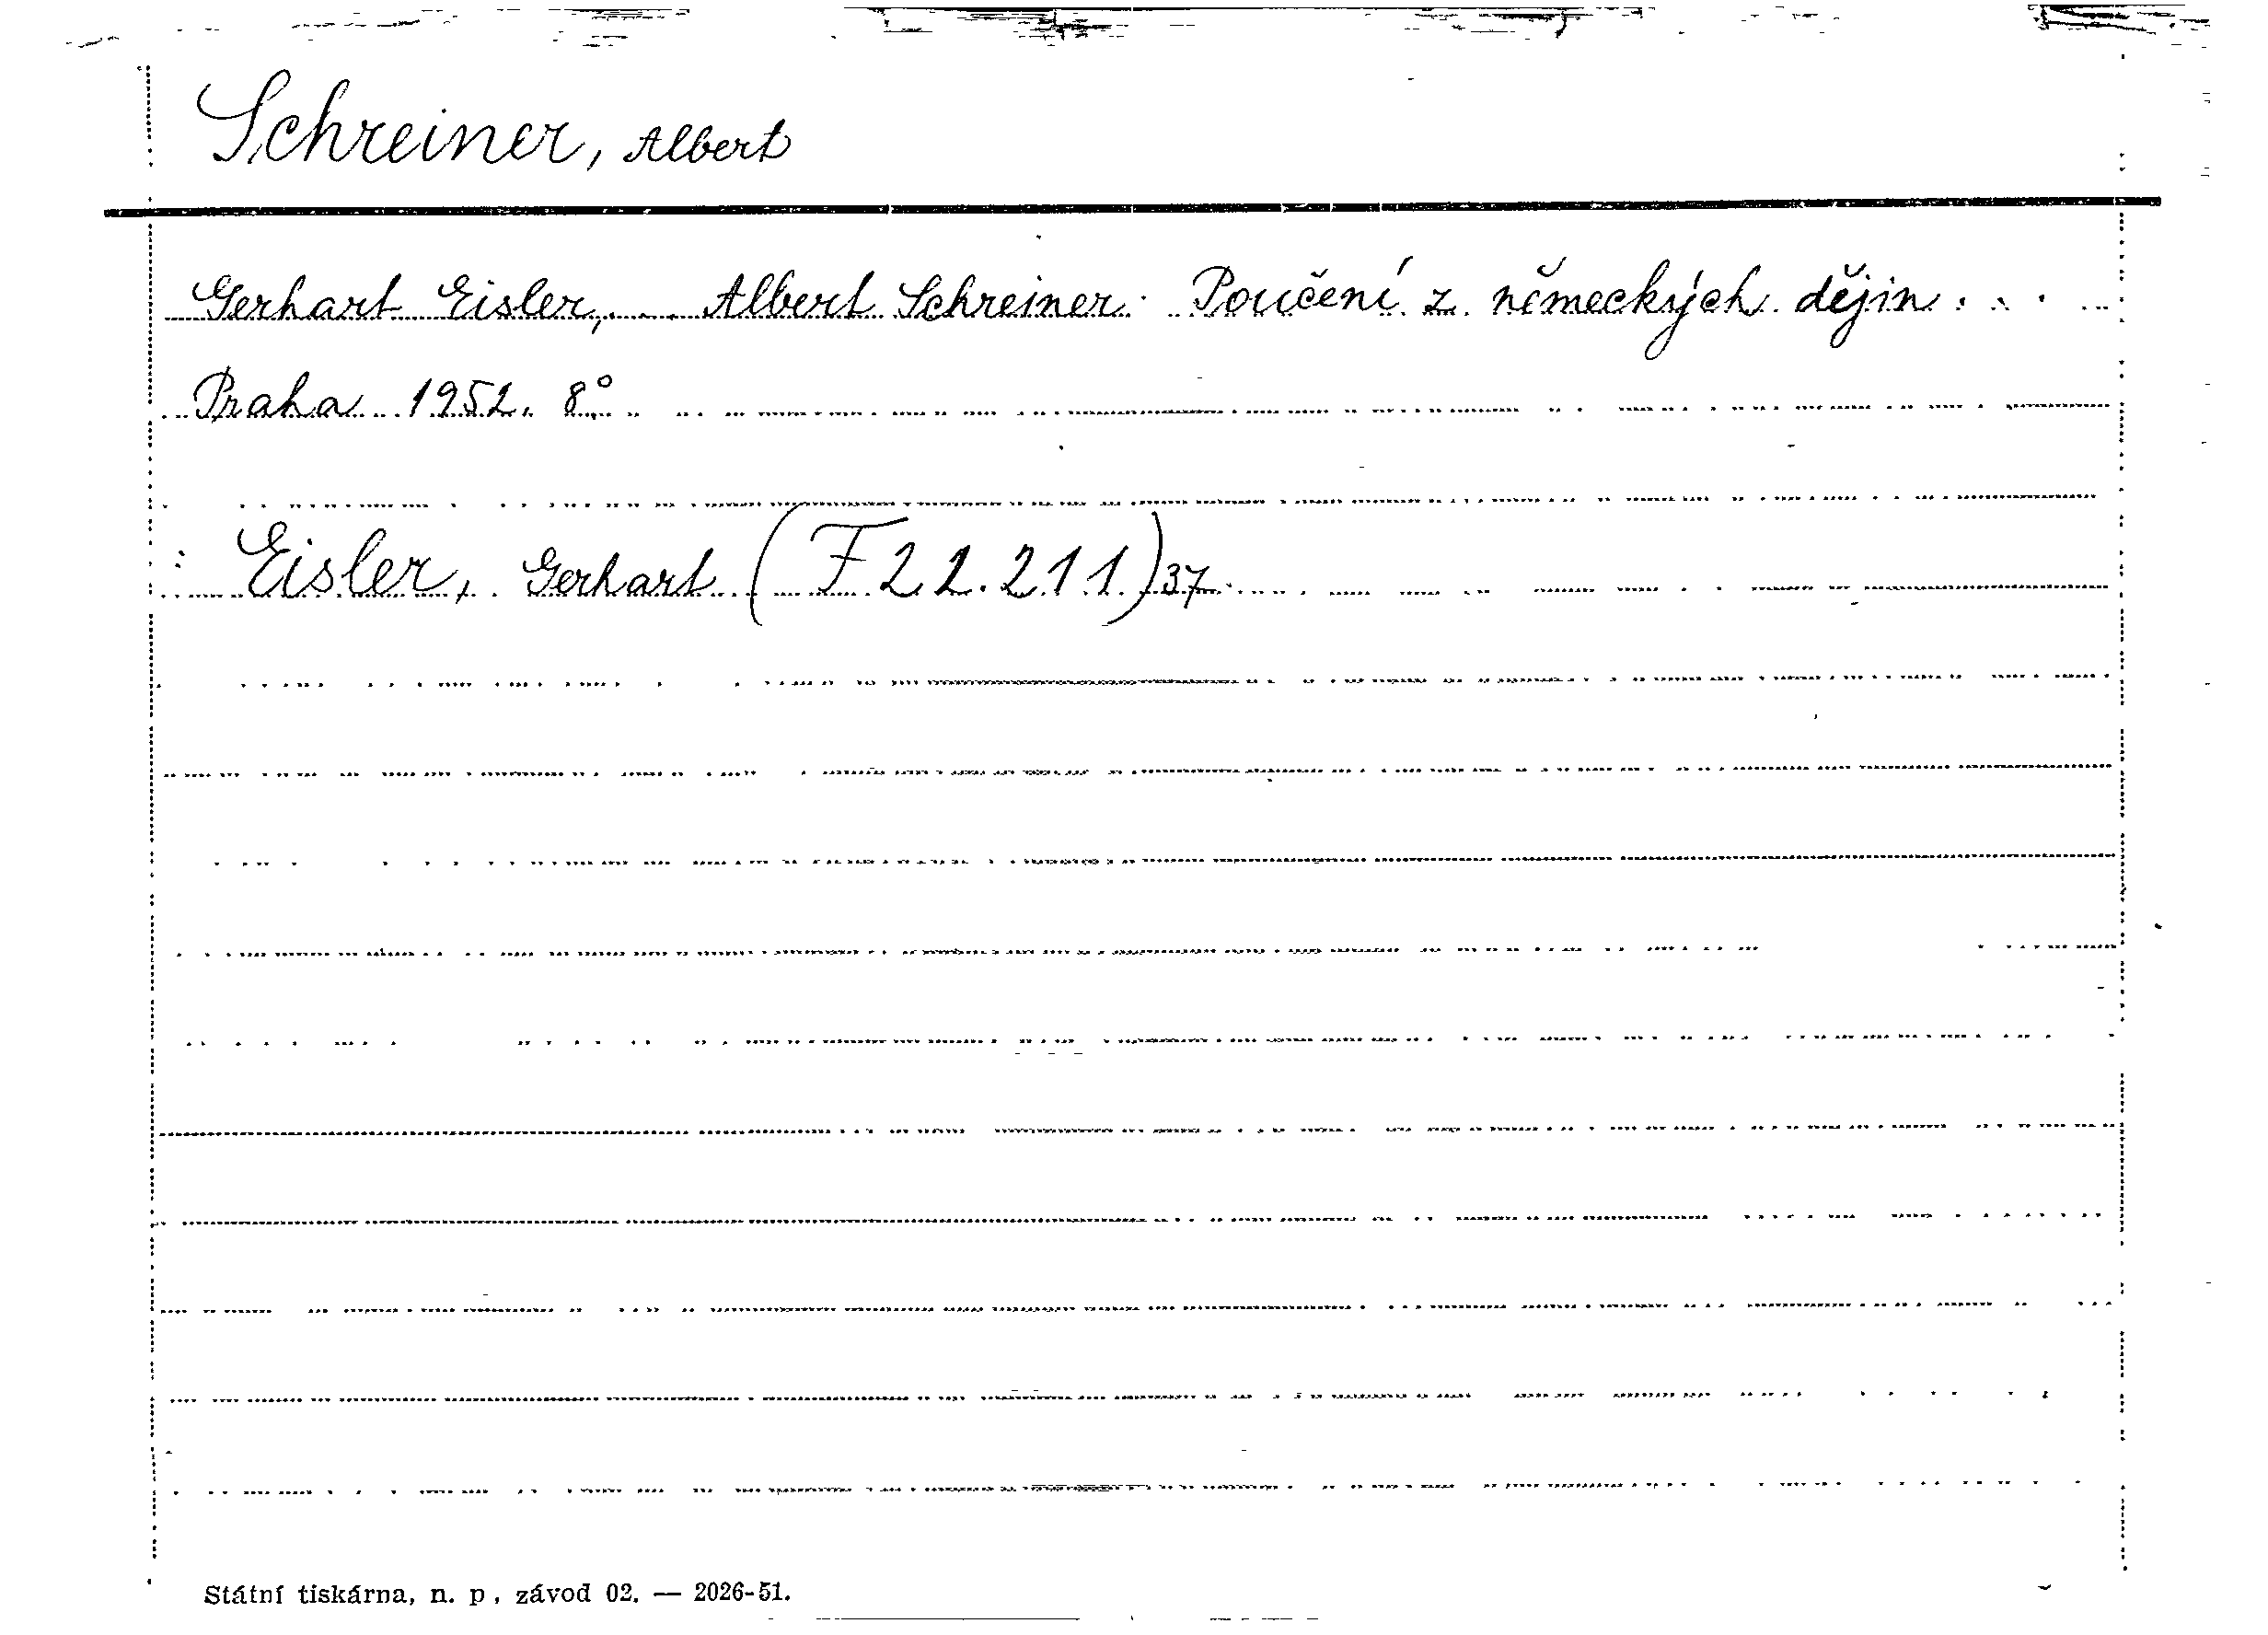 Schreiner, Albert
Gerhart Eisler, . . Albert Schreiner: Poučení z německých dějin . . .
Praha 1952. 8°.
: Eisler, Gerhart (F 22.211)37
Státní tiskárna, n. p., závod 02. — 2026-51.